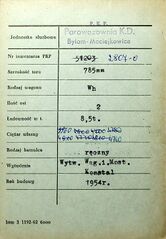 P. K. P.
Jednostka służbowa
Parowozownia K.D.
Bytom-Maciejkowice
Nr inwentarza PKP 51203 2804-0
Szerokość toru 785mm
Rodzaj wagonu Wh
Ilość osi 2
Ładowność w t. 8,5t.
Ciężar własny
Rodzaj hamulca ręczny
Wytwórnia Wytw. Wag.i Most.
Konstal
Rok budowy 1954r.